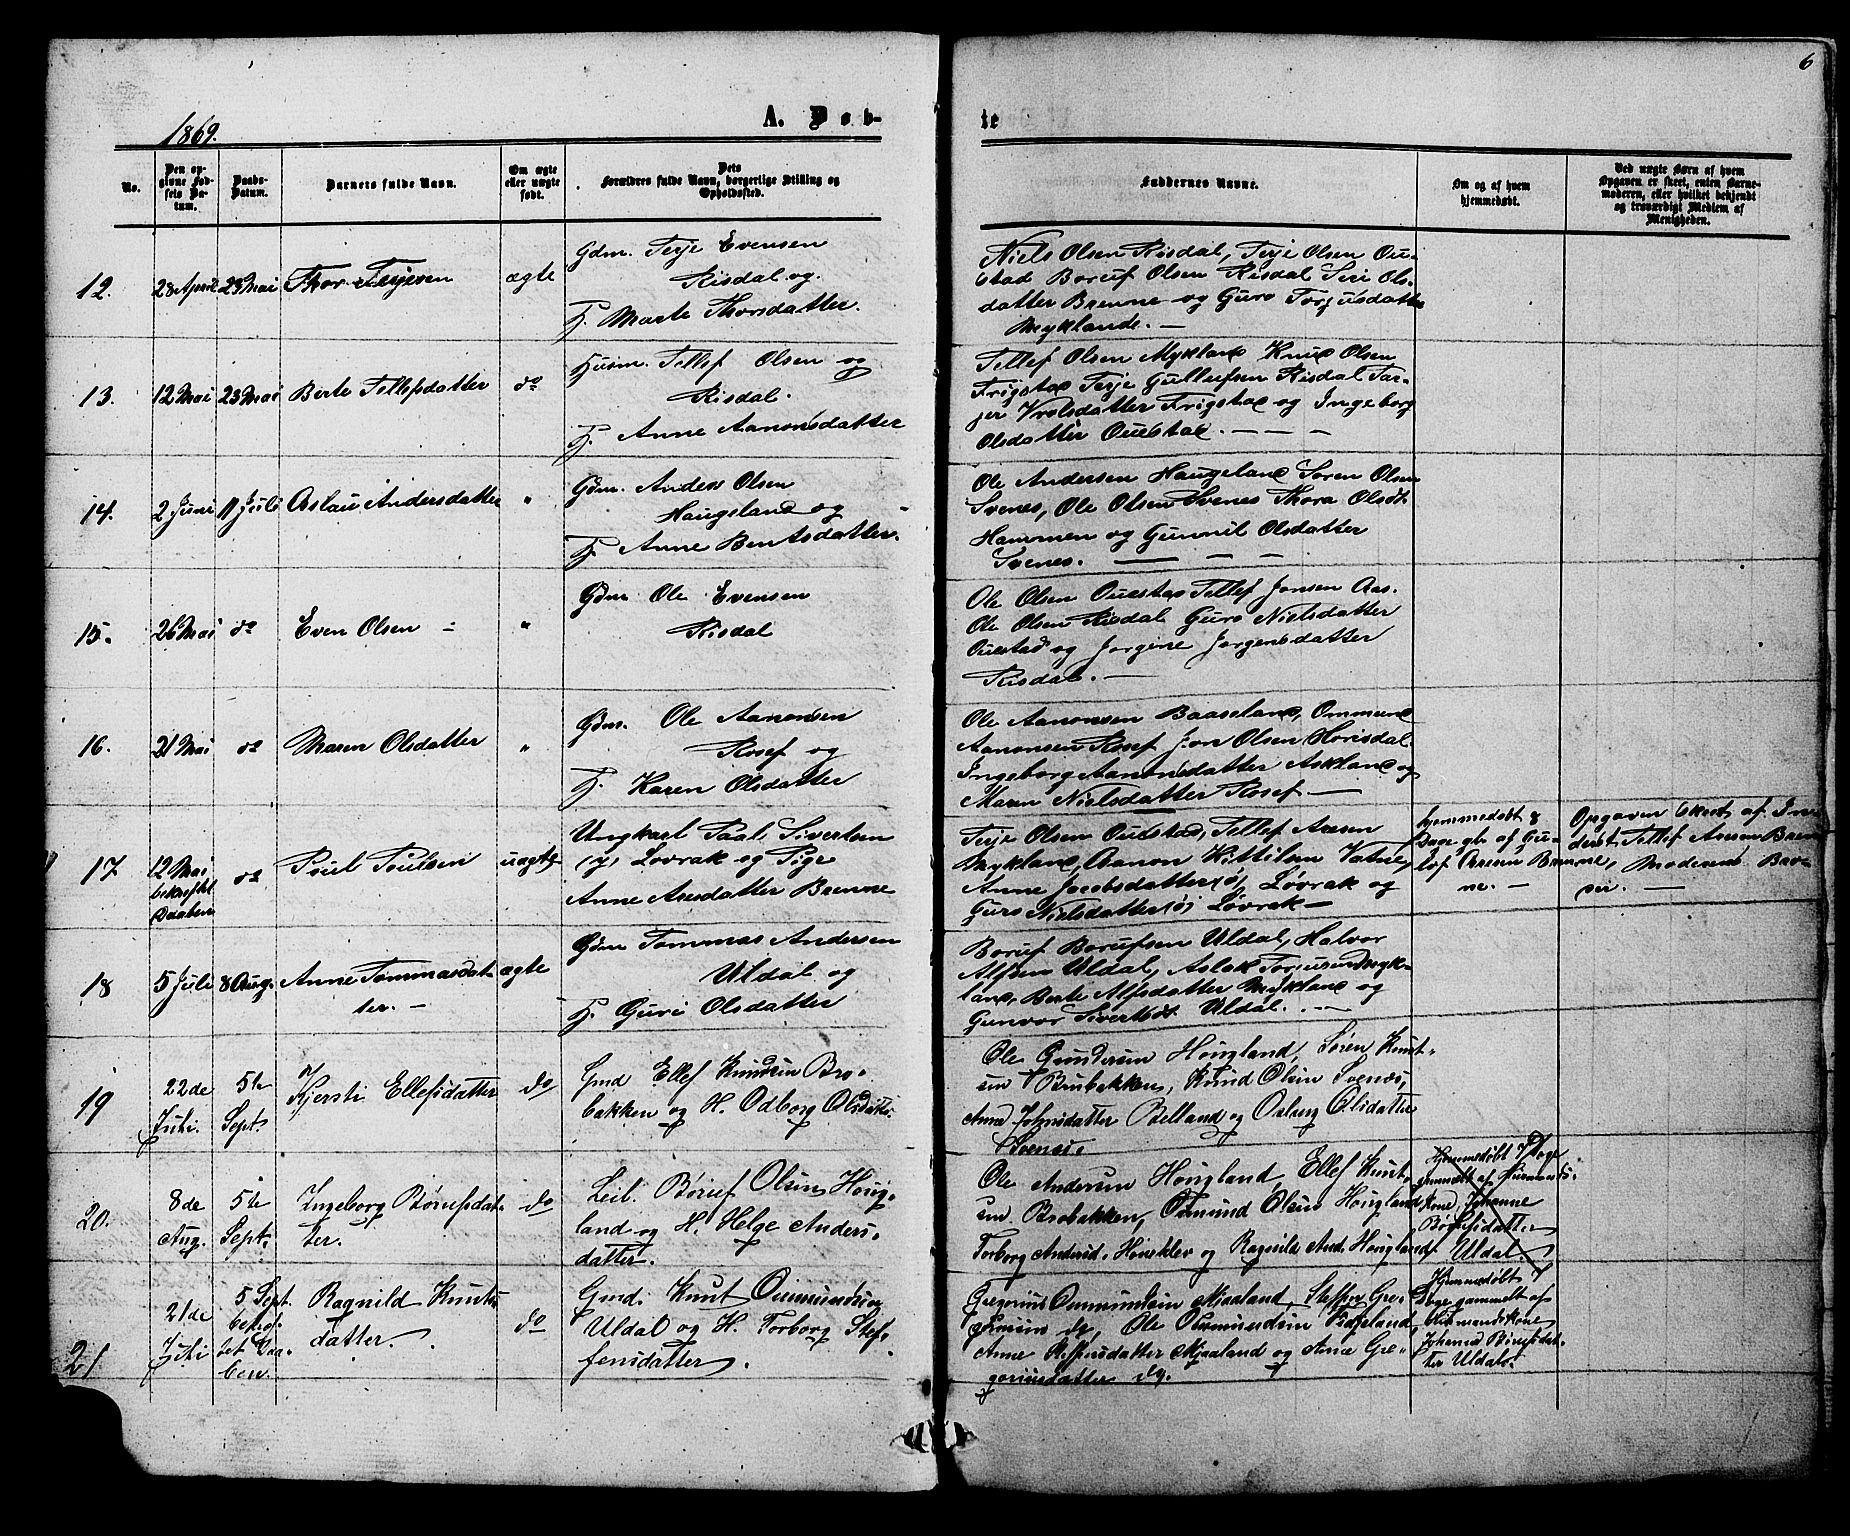 6
1869.
A. Døb-
te
No.
Den op-
givne Fød-
sels Da-
tum.
Daabs-
Datum.
Barnets fulde Navn.
Om ægte
eller uægte
født.
Dets
Forældres fulde Navn, borgerlige Stilling og
Opholdssted.
Faddernes Navne.
Om og af hvem
hjemmedøbt.
Ved uægte Børn af hvem
Opgaven er skeet, enten Barne-
moderen, eller hvilket bekjendt
og troværdigt Medlem af
Menigheden.
12.
28 April
23 Mai
Thor Terjesen
ægte
Gdm. Terje Evensen
Risdal og
H. Marte Thorsdatter.
Niels Olsen Risdal, Terje Olsen Ou-
stad Boruf Olsen Risdal Siri Ols-
datter Brenne og Guro Torgusdatter
Myklande. —
13.
12 Mai
23 Mai
Berte Tellefsdatter
do
Husm. Tellef Olsen og
Risdal.
H. Anne Aanonsdatter
Tellef Olsen Mykland Knud Olsen
Frigstad Terje Gullufsen Risdal Tar-
jer Vrolsdatter Frigstad og Ingeborg
Olsdatter Ouestad. — — —
14.
2 Juni
11 Juli
Aslau Andersdatter
"
Gdm. Anders Olsen
Haugeland og
H. Anne Bentsdatter.
Ole Andersen Haugeland Soren Olsen
Svenes, Ole Olsen Svenes Thora Olsdt
Hammen og Gunnil Olsdatter
Svenes. — — —
15.
26 Mai
do
Even Olsen
"
Gdm Ole Evensen
Risdal
Ole Olsen Ouestad Tellef Jonsen Aas.
Ole Olsen Risdal Guro Nielsdatter
Ouestad og Jorgine Jorgensdatter
Risdal. —
16.
21 Mai
do
Maren Olsdatter
"
Gdm. Ole Aanonsen
Rosef og
H. Karen Olsdatter
Ole Aanonsen Baaseland, Ommund
Aanonsen Rosef Jon Olsen Horisdal.
Ingeborg Aanonsdatter Askland og
Maren Nielsdatter Rosef. —
17
12 Mai
bekræftet
Daaben
do
Poul Poulsen
uægte
Ungkarl Paal Sivertsen
Lovrak og Pige
Anne Aresdatter Brenne
Terje Olsen Ouestad, Tellef Aresen
Mykland, Aanon Kittilsen Vatne,
Anne Jacobsdatter Løvrak og
Guro Nielsdatter Løvrak —
hjemmedøbt 8
Dage gl. af Gu-
lof Aresen Bren-
ne. —
Opgaven skeet af In-
derst Tellef Aresen Bren
ne, Moderens Bro-
der. —
18
5 Juli
8 Aug.
Anne Tommasdat-
ter. —
ægte
Gdm Tommas Andersen
Uldal og
H. Guri Olsdatter
Boruf Borufsen Uldal, Halvor
Alfsen Uldal, Aslak Torjusen Myk-
land, Berte Alfsdatter Mykland og
Gunvor Sivertsdt. Uldal. —
19
22de
Juli.
5te
Sept.
Kjersti Ellefsdatter
do
Gmd Ellef Knudsen Bro-
bakken og H. Odborg Olsdatter.
Ole Gundersen Hougland, Søren Knut-
sen Brobakken, Knud Olsen Svenes,
Anne Johnsdatter Belland og Osberg Olsdatter
Svenes.
20.
8de
Aug.
5te
Sept.
Ingeborg Børufsdat-
ter.
do
Leil. Børuf Olsen Houg-
land og H. Helge Anders-
datter.
Ole Andersen Hougland, Ellef Knut-
sen Brobakken, Osmund Olsen Hougland
Torborg Andersd. Honeklev og Ragnild And. Hougland.
Hjemmedøbt 7 Dage
gammelt af Husmands-
kone Johanne
Børufsdatter
Uldal.
21
21de
Juli
5 Sept.
bekræf-
tet Daa-
ben.
Ragnild Knuts-
datter.
do
Gmd. Knut Ommundsen
Uldal og H. Torborg Stef-
fensdatter.
Gregorius Ommundsen Mjaaland, Steffen Gre-
gorius do, Ole Ommundsen Mjaaland,
Anne Steffensdatter Mjaaland og Anne Gre-
goriusdatter do.
Hjemmedøbt 7
Dage gammelt af
Husmandskone
Johanne Børufsdat-
ter Uldal.